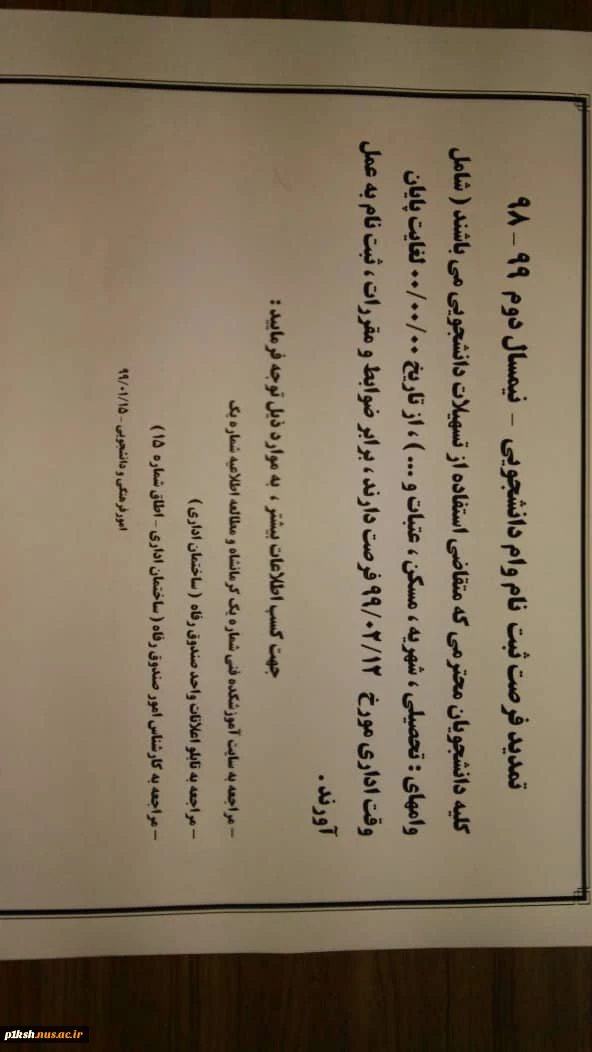 تمدید فرصت ثبت نام وام دانشجویی - نیمسال دوم ۹۹ - ۹۸
کلیه دانشجویان محترمی که متقاضی استفاده از تسهیلات دانشجویی می باشند ( شامل
وامهای : تحصیلی ، شهریه ، مسکن ، عتبات و ... ) ، از تاریخ ۰۰/۰۰/۰۰ لغایت پایان
وقت اداری مورخ ۹۹/۰۲/۱۲ فرصت دارند ، برابر ضوابط و مقررات ، ثبت نام به عمل
آورند .
جهت کسب اطلاعات بیشتر ، به موارد ذیل توجه فرمایید :
- مراجعه به سایت آموزشکده فنی شماره یک کرمانشاه و مطالعه اطلاعیه شماره یک
- مراجعه به تابلو اعلانات واحد صندوق رفاه ( ساختمان اداری )
- مراجعه به کارشناس امور صندوق رفاه ( ساختمان اداری - اطاق شماره ۱۵ )
امور فرهنگی و دانشجویی - ۹۹/۰۱/۱۵
p1ksh.nus.ac.ir